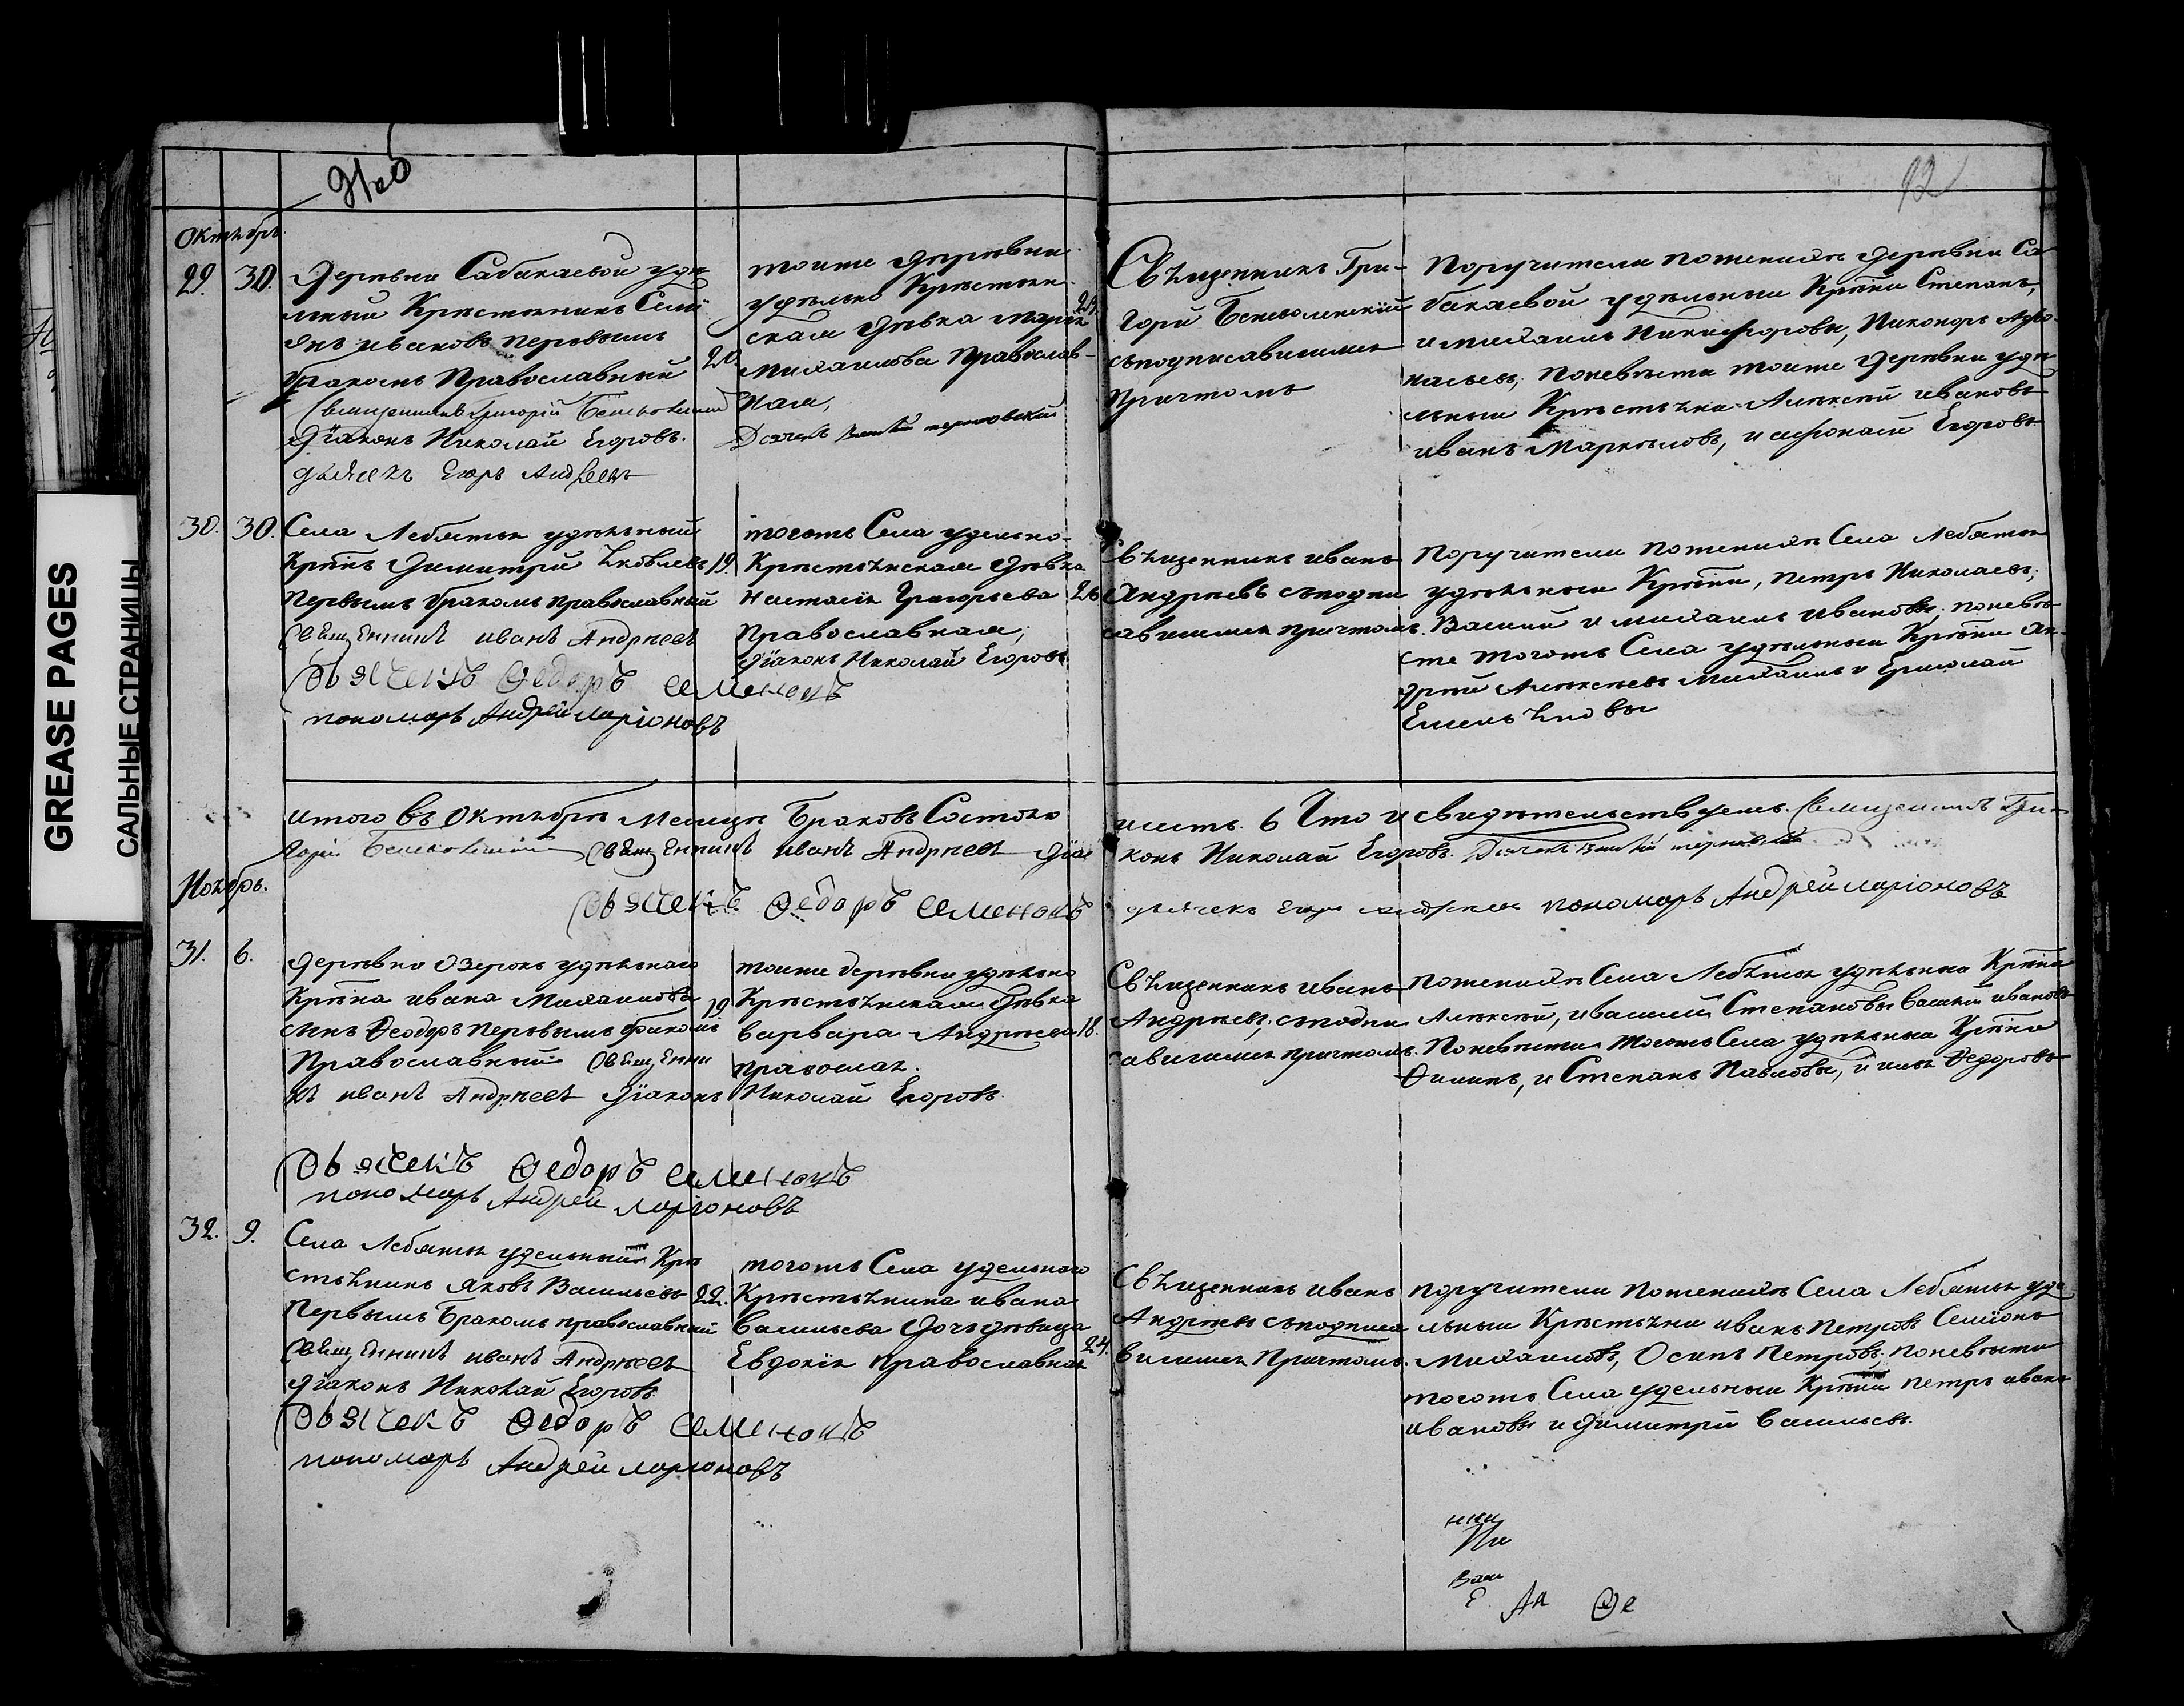 91об
92
Октябрь.
29. 30. Деревни Сабакаевой удѣ
льный Крестьянинъ Семі
энъ ивановъ первымъ 20.
бракомъ Православный
Священникъ Григорій
Діаконъ Николай Егоровъ.
дьячекъ Егоръ Андреевъ
тойже деревни
удѣльно Крестьян
ская дѣвка Марья 24.
Михайлова Православ-
ная,
Дьячекъ
Священникъ Гри-
горій
съподписавшимся
причтомъ
Поручители поженихѣ деревни Са
бакаевой удѣльныи Крѣни Степанъ,
и михаилъ Никифоровы, Никоноръ Афо-
насьевъ, поневѣсти тоиже деревни удѣ
льныи Крестьяна Алексѣй ивановъ
иванъ Маркеловъ, и афонасій Егоровъ
30. 30. Села Лебяжья удѣльный
Крѣнъ Димитрій Яковлевъ 19.
первымъ бракомъ православный
Священникъ иванъ Андреевъ
дьячекъ Ѳедоръ семеновъ
пономарь Андрей ларіоновъ
тогожъ Села удельно-
Крестьянская дѣвка
Настасія Григорьева 26
Православная;
діаконъ Николай Егоровъ
Священникъ иванъ
Андреевъ съподпи
савшимся причтомъ.
Поручители поженихѣ Села Лебяжья
удѣльныи Крѣни, петръ Николаевъ,
Василий и михаилъ ивановы, поневѣ
сте тогожъ Села удѣльныи Крѣни Ан-
дрей Алексѣевъ Михаилъ и Ермолай
Емельяновы
итого въ Октябрѣ Месяцѣ Браковъ Состояло
шесть. 6 Что и свидѣтельствуемъ. Священникъ Гри-
горій Священникъ иванъ Андреевъ Діа
конъ Николай Егоровъ. Дьячекъ
дьячекъ Ѳедоръ семеновъ
дьячекъ Егоръ Андреевъ пономарь Андрей ларіоновъ
Ноябрь.
31. 6. деревни Озерокъ удѣльнаго
Крѣна ивана Михаилова 19.
сынъ Ѳеодоръ первымъ бракомъ
Православный Священни
къ иванъ Андреевъ Діаконъ
дьячекъ Ѳедоръ семеновъ
пономарь Андрей ларіоновъ
тоиже деревни удѣльно
Крестьянская дѣвка
варвара Андреева 18.
правослан.
Николай Егоровъ
Священникъ иванъ
Андреевъ, съподпи
савшимся причтомъ.
поженихѣ Села Лебяжья удѣльныи Крѣни
Алексѣй, ивасилій Степановы Василій ивановъ
Поневѣсти тогожъ Села удѣльныи Крѣни
Филипъ, и Степанъ Павловы, и илья Ѳедоровъ
32. 9. Села Лебяжья удельный Кре
стьянинъ яковъ Васильевъ 22.
Первымъ Бракомъ православный
Священникъ иванъ Андреевъ
діаконъ Николай Егоровъ
дьячекъ Ѳедоръ семеновъ
пономарь Андрей ларіоновъ
тогожъ Села удельнаго
Крестьянина ивана
Васильева Дочь дѣвица 24.
Евдокія православная
Священникъ иванъ
Андреевъ съподписа
вшимся Причтомъ.
поручители поженихѣ Села Лебяжья уде
льныи Крестьяни иванъ Петровъ Семіонъ
Михаиловъ, Осипъ Петровъ. поневѣсти
тогожъ Села удельныи Крѣни петръ иванъ
ивановы и Димитрій Васильевъ.
Ва
Ан Ѳе
GREASE PAGES
САЛЬНЫЕ СТРАНИЦЫ